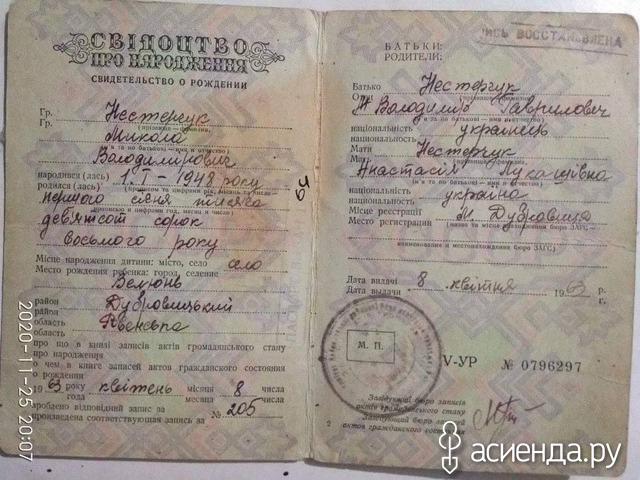 СВІДОЦТВО
ПРО НАРОДЖЕННЯ
СВИДЕТЕЛЬСТВО О РОЖДЕНИИ
Гр. Нестерчук
Гр.
Микола
Володимирович
народився (лась) 1.I – 1948 року
родился (лась)
першого січня тисяча
дев'ятсот сорок
восьмого року
Місце народження дитини: місто, село село
Место рождения ребенка: город, селение
Велюнь
район Дубровицький
район
область Рвенська
область
про що в книзі записів актів громадянського стану
про народження
о чем в книге записей актов гражданского состояния
о рождении
1963 року квітень місяця 8 числа
года месяца числа
зароблено відповідний запис за № 205
произведена соответствующая запись за
64
ВОССТАНОВЛЕНА
БАТЬКИ:
РОДИТЕЛИ:
Батько Нестерчук
Володимир Гаврилович
національність українець
национальность
Мати Нестерчук
Анастасія Лукашівна
національність українка
национальность
Місце реєстрації м. Дубровиця
Место регистрации
наименование и местонахождение бюро ЗАГС
Дата видачі 8 квітня 1963 р.
Дата выдачи г.
М. П.
V-УР № 0796297
Завідуючий бюро записів
актів громадянського стану
Заведующий бюро записей
2 актов гражданского состояния
2020-11-25 20:07
асиенда.ру